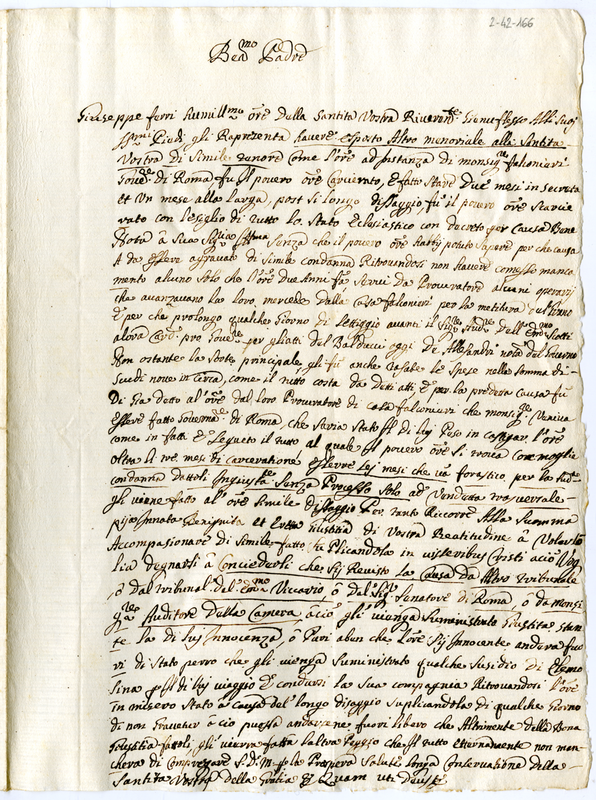 2-42-166
Bea.mo Padre
Giuseppe ferri humill.mo ore della Santita Vostra Riveren.te Genuflesso Alli suoi
SS.mi Piedi gli Rapresenta havere esposto Altro memoriale alla Santita
Vostra di Simile tenore come l'ore ad instanza di monsig.re falconieri
Gov.re di Roma fu Il povero ore Carcerato, e fatto stare due mesi in secreta
et Un mese alla larga, post si longo disaggio fu il povero ore scarcie
rato con l'esiglio di tutto lo stato Eclesiastico con decreto per Causa Bene
Nota à Sua Sig.ria Ill.ma senza che il povero ore habbi potuto sapere per che causa
A da essere agravato di simile condanna Ritrovandosi non havere comesso manca
mento alcuno solo che l'ore due Anni fa servì da Procuratore alcuni operarij
che avanzavano la loro mercede dalla Casa falconieri per la metitura
È per che prolongò qualche Giorno di letiggio avanti il
alora pro Gov.re per gliatti del Balducci oggi de Alesandri not.o del Governo
Non ostante la sorte principale gli fù anche tasate le spese nella somma di
Scudi nove in circa, come il tutto costa da detti atti È per la predetta causa fù
Di Gia detto al'ore dal loro Procuratore di casa falconieri che monsig.re Veniva
Essere fatto Governa.re di Roma che saria stato Il di lui peso in castigar l'ore
come in fatti È seguito il tutto al quale Il povero ore si trova con moglie
oltre li tre mesi di carceratione esserne sej mesi che và forastico, per la sud.a
condanna dattoli Ingiusta.te senza Processo solo ad Vendetta
gli viene fatto all'ore simile disaggio Per tanto Ricorre Alla summa
pija Innata Benignita et Retta giustitia di Vostra Beatitudine à Volersi
Accompasionare di simile fatto suplicandola in visseribus Cristi aciò Vog
lia degnarsi à Conciederli che sij Revisto la Causa da Altro tribunale
ò dal tribunal del Vicario ò dal Sig.r Senatore di Roma, ò da monsi
g.re Auditore della Camera, aciò gli vienga suministrato Giustitia stan
te la di luj Innocenza, ò Puri abin che l'ore sij Innocente andera fuo
ri di stato perro che gli vienga suministrato qualche susidio di Elemo
sina p Il di luj viaggio È condursi la sua compagnia Ritrovandosi l'ore
in misero stato à causa del longo disaggio suplicandola di qualche giorno
di non Gravatur à cio possa andarene fuori libero che Altrimente della Bona
Giustitia fattoli, gli viene fatta l'altra Peggio che Il tutto eternamente non man
chera di Compregare S. D. M. p la Prospera salute longa Conservatione della
Santita Vostra della Gratia & Quam uti Deus &